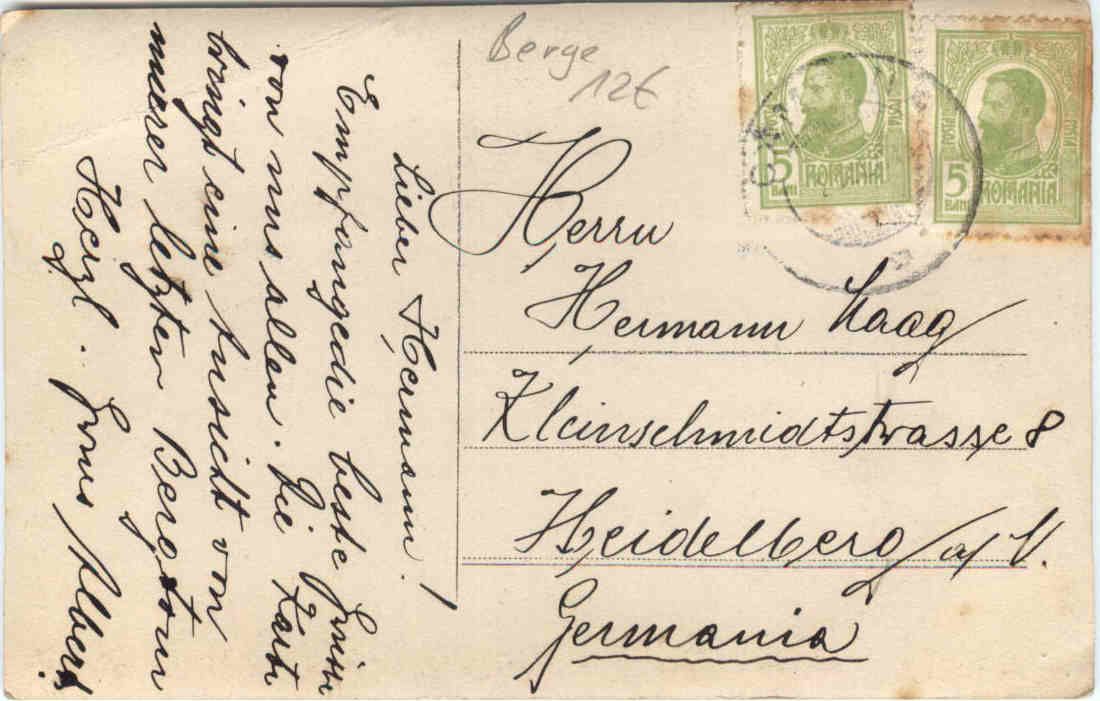 Berge
12€
POSTA
5 BANI
ROMANIA
POSTA
POSTA
5 BANI
ROMANIA
POSTA
Herrn
Hermann Haag
Kleinschmidtstrasse 8
Heidelberg a/N.
Germania
Lieber Hermann!
Empfange die beste Grüße
von uns allen. Die Karte
bringt eine Ansicht von
unserer letzten Bergtour
Herzl. Gruss Albert